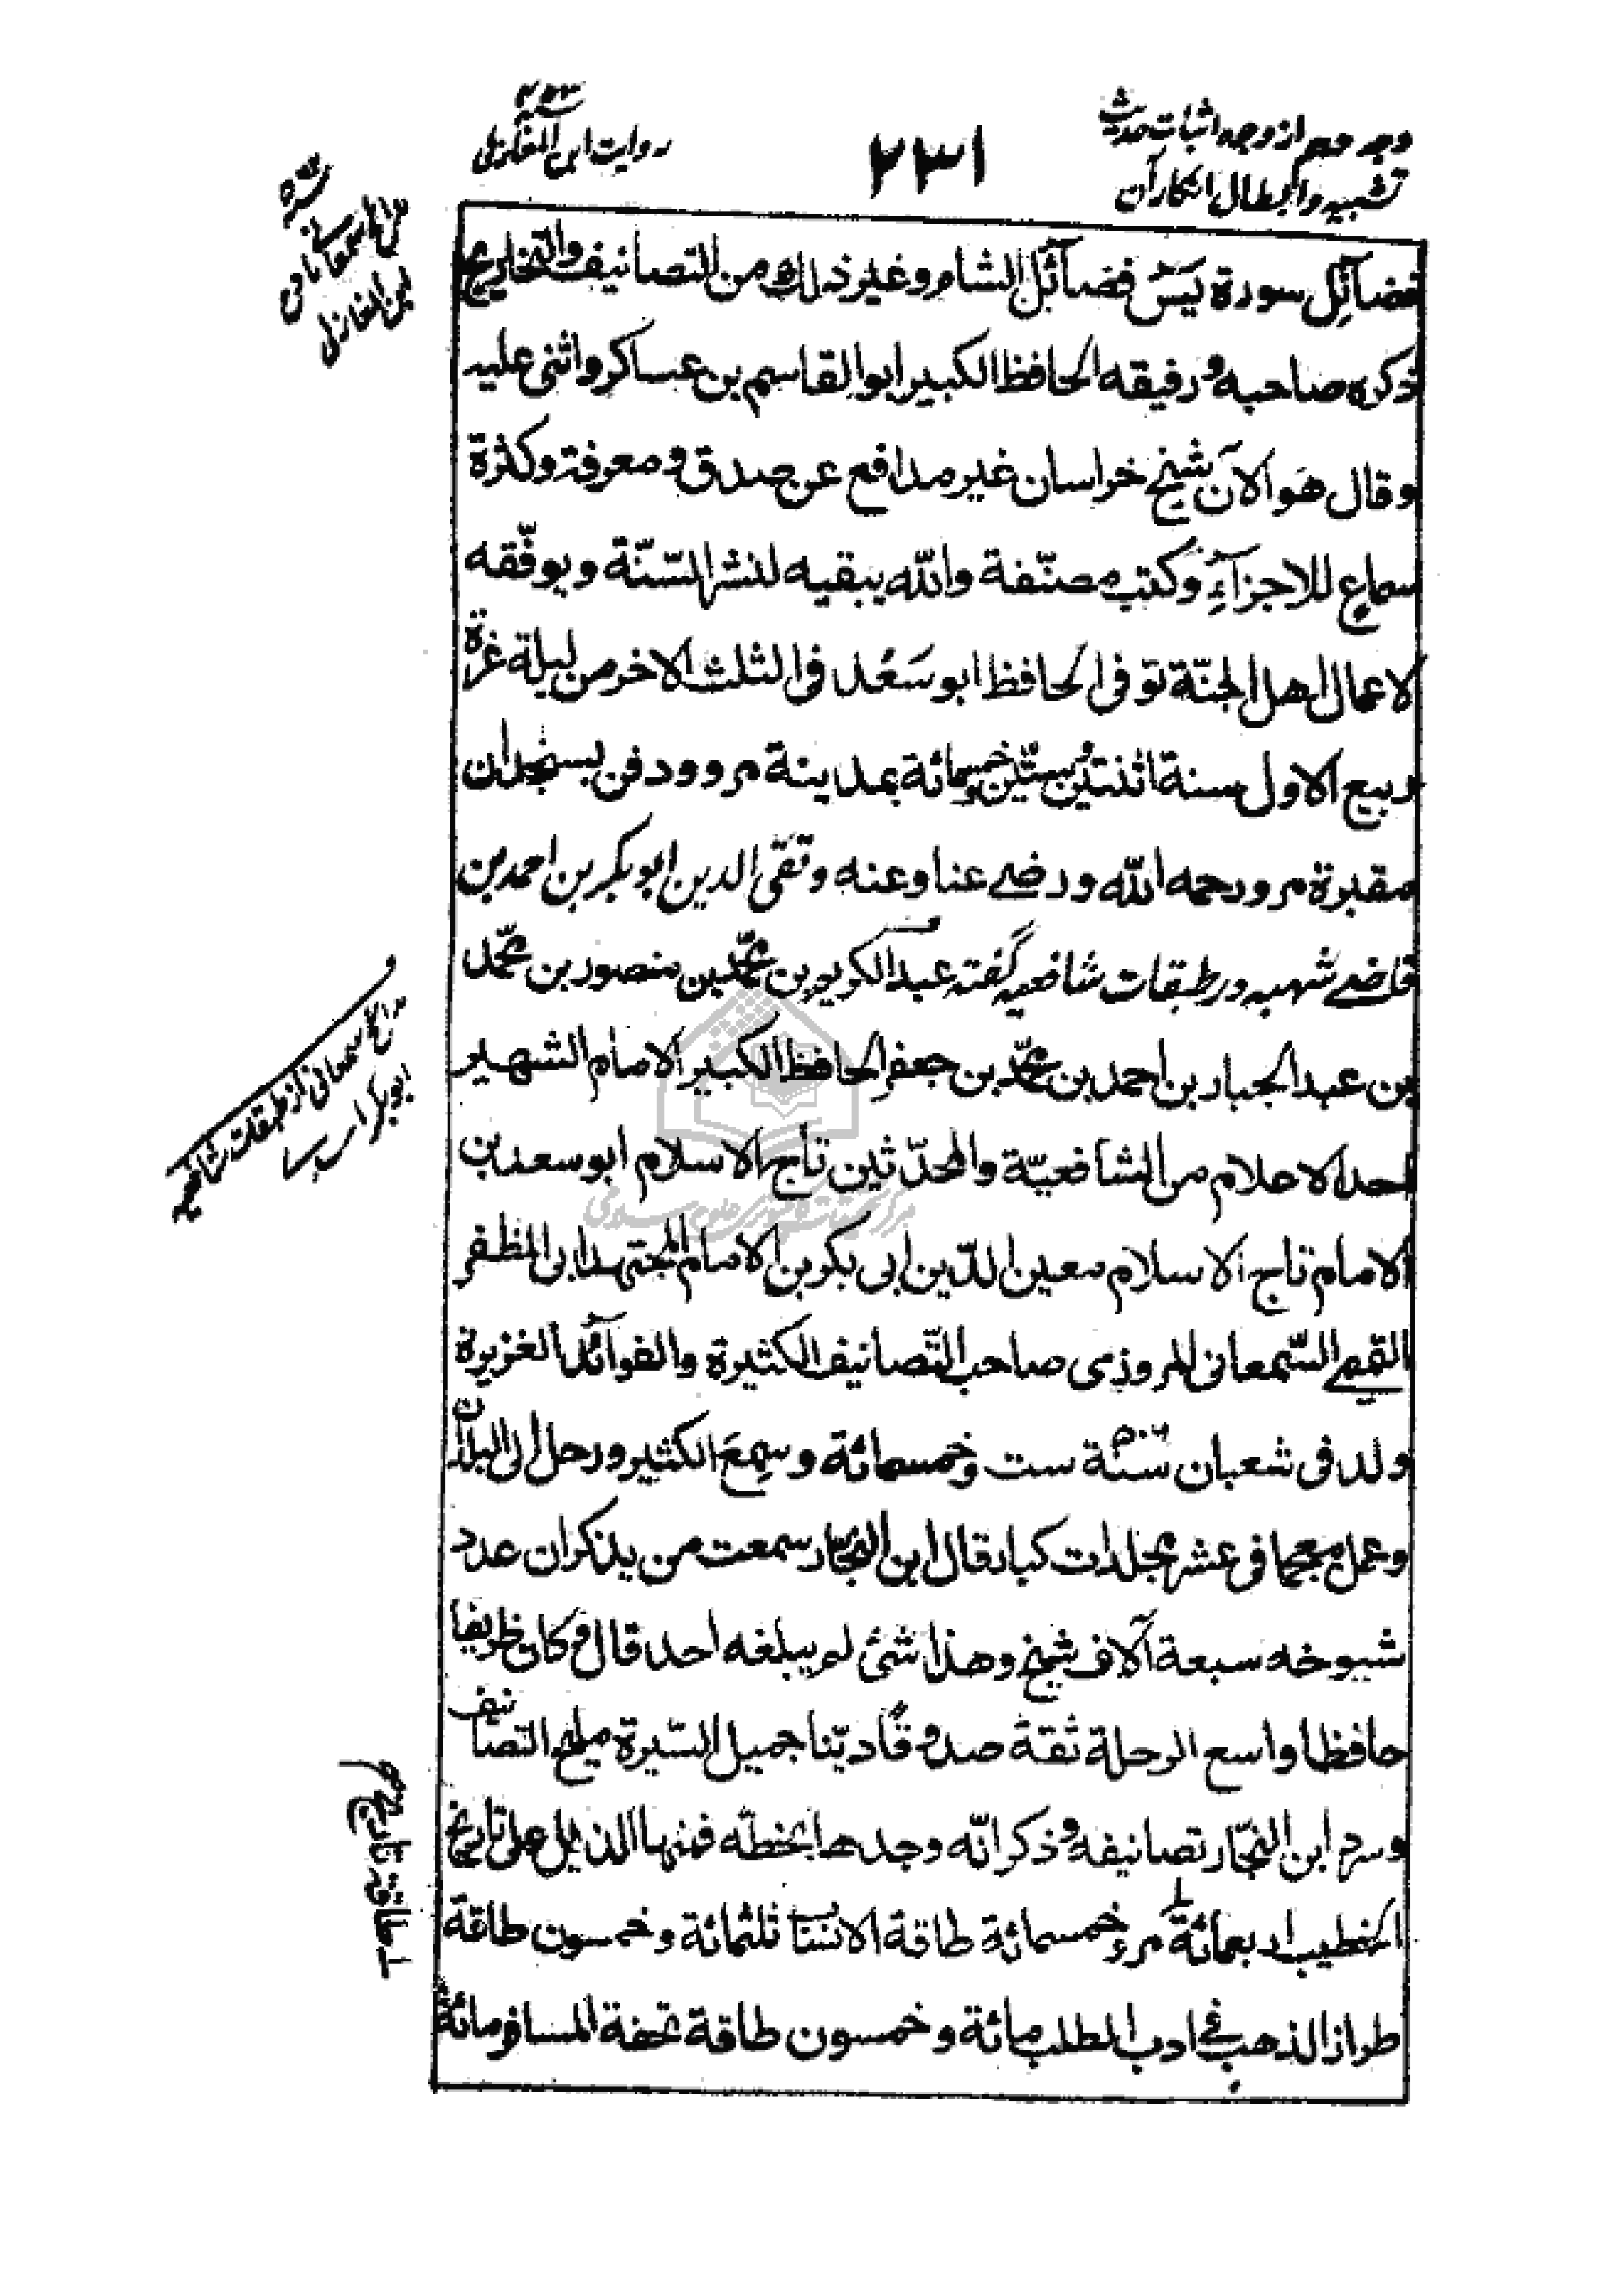 وجه دهم از وجوه اثبات حديث
تشبيه وابطال انكار آن
٢٣١
روايت ابن المغازلى
فضآئل سورة يس فضآئل الشام وغير ذلك من التصانيف والتخاريج
ذكره صاحبه ورفيقه الحافظ الكبير ابو القاسم بن عساكر واثنى عليه
وقال هو الآن شيخ خراسان غير مدافع عن صدق ومعرفة وكثرة
سماع للاجزآء وكتب مصنّفة والله يبقيه لنشر السّنّة ويوفّقه
لاعمال اهل الجنّة توفى الحافظ ابو سَعْد فى الثلث الاخر من ليلة غرة
ربيع الاول سنة اثنتين وستّين وخمسمائة بمدينة مرو ودفن بسنجدان
مقبرة مرو رحمه الله ورضے عنا وعنه وتقى الدين ابو بكر بن احمد بن
قاضے شهبه در طبقات شافعيه گفته عبد الكريم بن محمّد بن منصور بن محمّد
بن عبد الجبار بن احمد بن محمّد بن جعفر الحافظ الكبير الامام الشهير
احد الاعلام من الشافعيّة والمحدّثين تاج الاسلام ابو سعد بن
الامام تاج الاسلام معين الدّين ابى بكر بن الامام المجتهد ابى المظفر
القيمے السّمعانى المروذى صاحب التّصانيف الكثيرة والفوآئد الغزيرة
ولد فى شعبان سنة ٥٠٦ ست وخمسمائة وسمِعَ الكثير ورحل الى البلدان
وعمل معجما فى عشر مجلدات كبار قال ابن النجّار سمعت من يذكر ان عدد
شيوخه سبعة آلاف شيخ وهذا شئ لم يبلغه احد قال وكان ظريفا
حافظا واسع الرحلة ثقة صدوقًا ديّنا جميل السّيرة مليح التصانيف
وسرد ابن النجّار تصانيفه وذكر انّه وجدها بخطّه فمنها الذيل على تاريخ
الخطيب اربعمائة مرو خمسمائة طاقة الانساب ثلثمائة وخمسون طاقة
طراز الذهب فے ادب الطلب مائة وخمسون طاقة تحفة المسافر مائة
ابن المغازلى
سمعانى از طبقات شافعيه
ابو بكر اسدى
طاقة تاريخ مرو